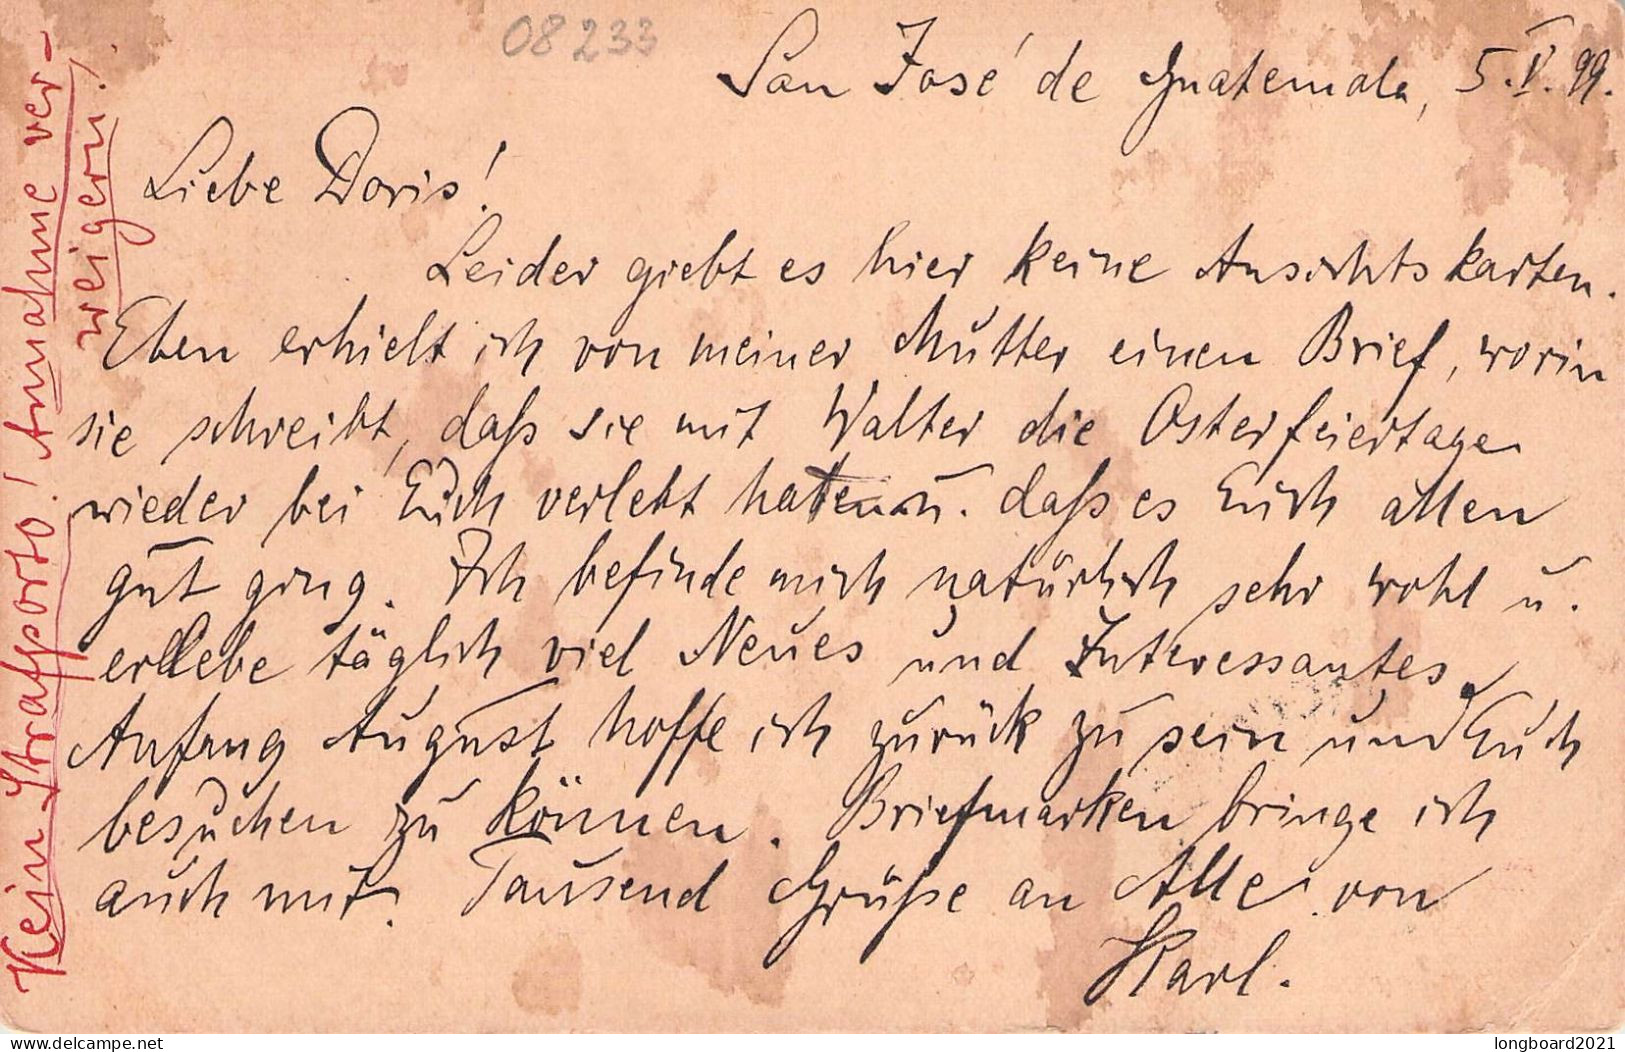 08233
San José de Guatemala, 5.V.99.
Liebe Doris!
Leider giebt es hier keine Ansichtskarten.
Eben erhielt ich von meiner Mutter einen Brief, worin
sie schreibt, daß sie mit Walter die Osterfeiertage
wieder bei Euch verlebt haben u. daß es Euch allen
gut ging. Ich befinde mich natürlich sehr wohl u.
erlebe täglich viel Neues und Interessantes.
Anfang August hoffe ich zurück zu sein und Euch
besuchen zu können. Briefmarken bringe ich
auch mit. Tausend Grüße an Alle von
Karl.
Kein Strafporto! Annahme ver-
weigern!
www.delcampe.net
longboard2021